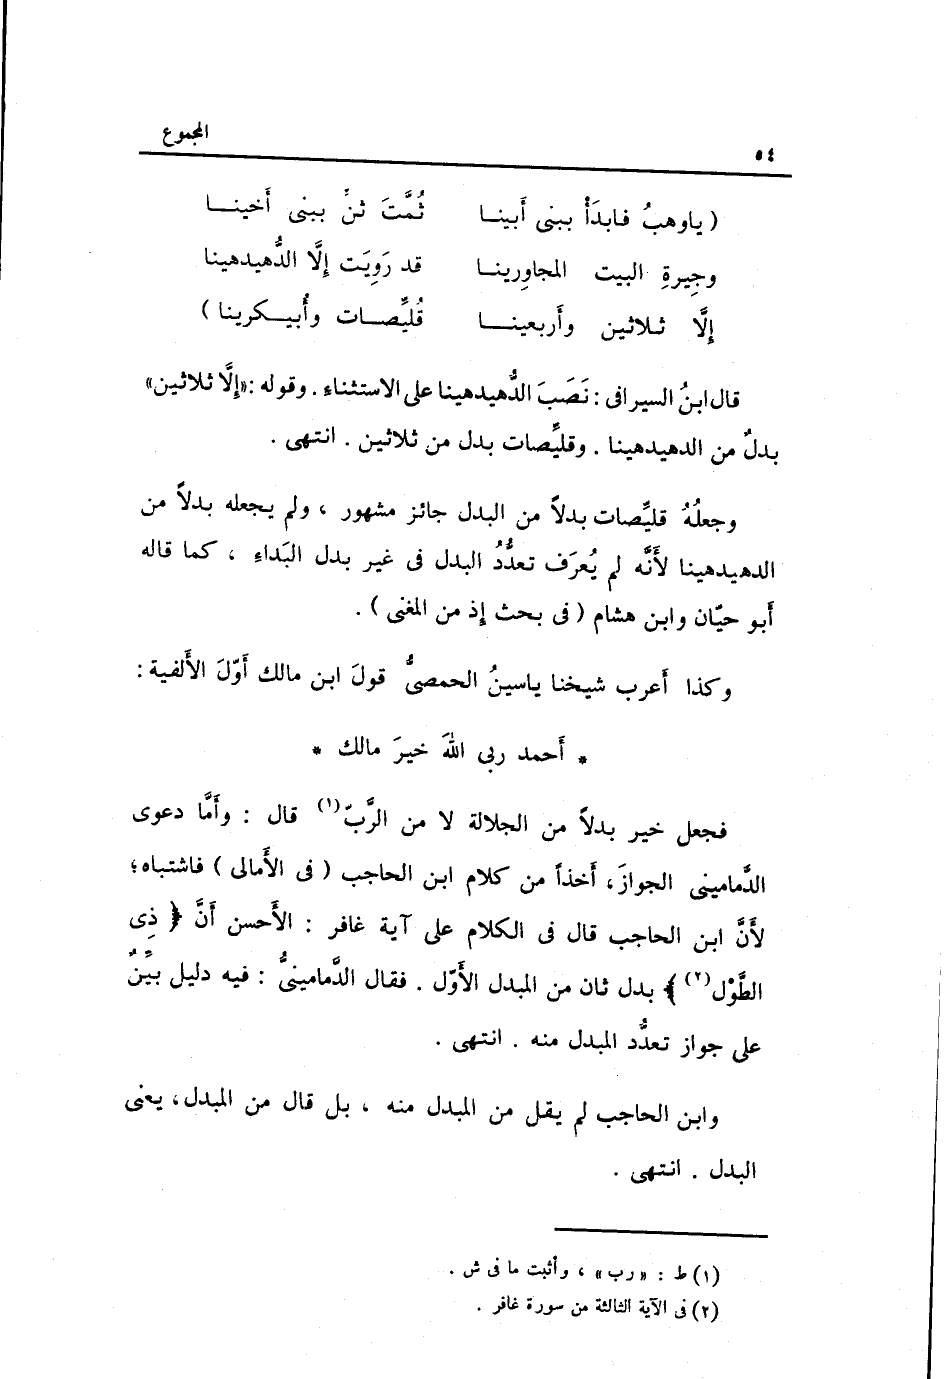 ٥٤ المجموع
( ياوهبُ فابدَأْ ببنى أَبينـا ثُمَّتَ ثنِّ ببنى أَخينـا
وجِيرةِ البيت المجاوِرينـا قد رَوِيَت إِلَّا الدُّهيدهينا
إِلَّا ثلاثين وأَربعينـا قُليِّصـات وأُبيـكرينا )
قال ابنُ السيرافى : نَصَبَ الدُّهيدهينا على الاستثناء . وقوله : «إِلَّا ثلاثين»
بدلٌ من الدهيدهينا . وقليِّصات بدل من ثلاثين . انتهى .
وجعلُهُ قليِّصات بدلاً من البدل جائز مشهور ، ولم يجعله بدلاً من
الدهيدهينا لأَنَّه لم يُعرَف تعدُّدُ البدل فى غير بدل البَداء ، كما قاله
أَبو حيّان وابن هشام ( فى بحث إِذ من المغنى ) .
وكذا أَعرب شيخنا ياسينُ الحمصىُّ قولَ ابن مالك أَوّلَ الألفية :
* أَحمد ربى اللهَ خيرَ مالك *
فجعل خير بدلاً من الجلالة لا من الرَّبّ(١) قال : وأَمَّا دعوى
الدَّمامينى الجوازَ ، أَخذاً من كلام ابن الحاجب ( فى الأَمالى ) فاشتباه ؛
لأَنَّ ابن الحاجب قال فى الكلام على آية غافر : الأَحسن أَنَّ ﴿ ذِى
الطَّوْل(٢) ﴾ بدل ثان من المبدل الأَوّل . فقال الدَّمامينىُّ : فيه دليل بيِّنٌ
على جواز تعدُّد المبدل منه . انتهى .
وابن الحاجب لم يقل من المبدل منه ، بل قال من المبدل ، يعنى
البدل . انتهى .
(١) ط : «رب» ، وأثبت ما فى ش .
(٢) فى الآية الثالثة من سورة غافر .